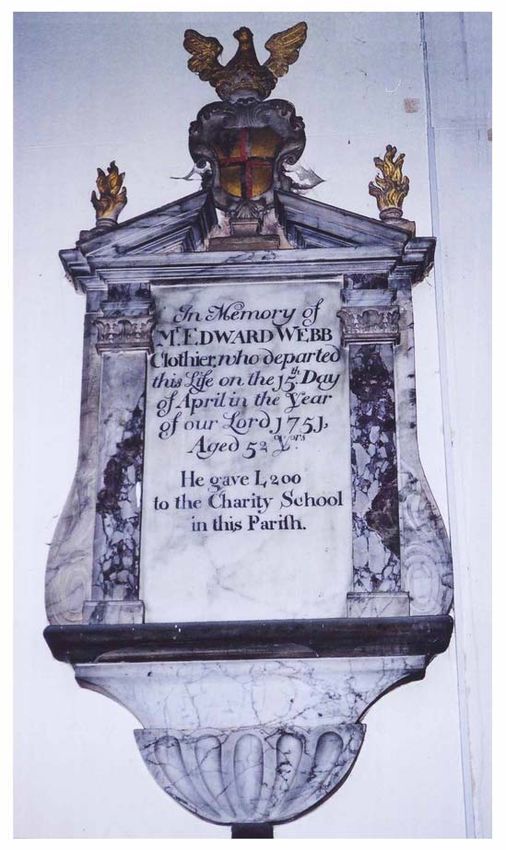 In Memory of
Mr. EDWARD WEBB
Clothier, who departed
this Life on the 15th Day
of April in the Year
of our Lord 1751,
Aged 52 Yrs.
He gave L200
to the Charity School
in this Pariſh.